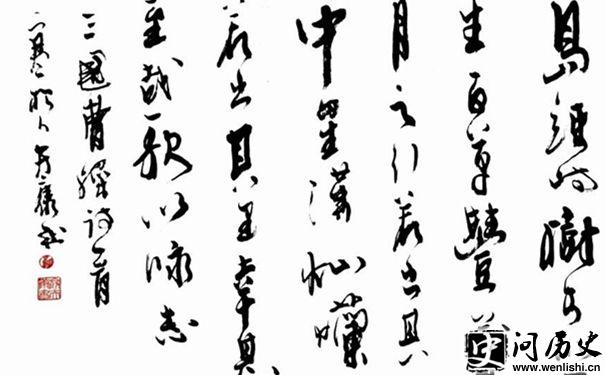 島竦峙樹木
生百草豐
月之行若出其
中星漢燦爛
若出其里幸甚
至哉歌以詠志
三國曹操詩一首
史 问历史
www.wenlishi.cn